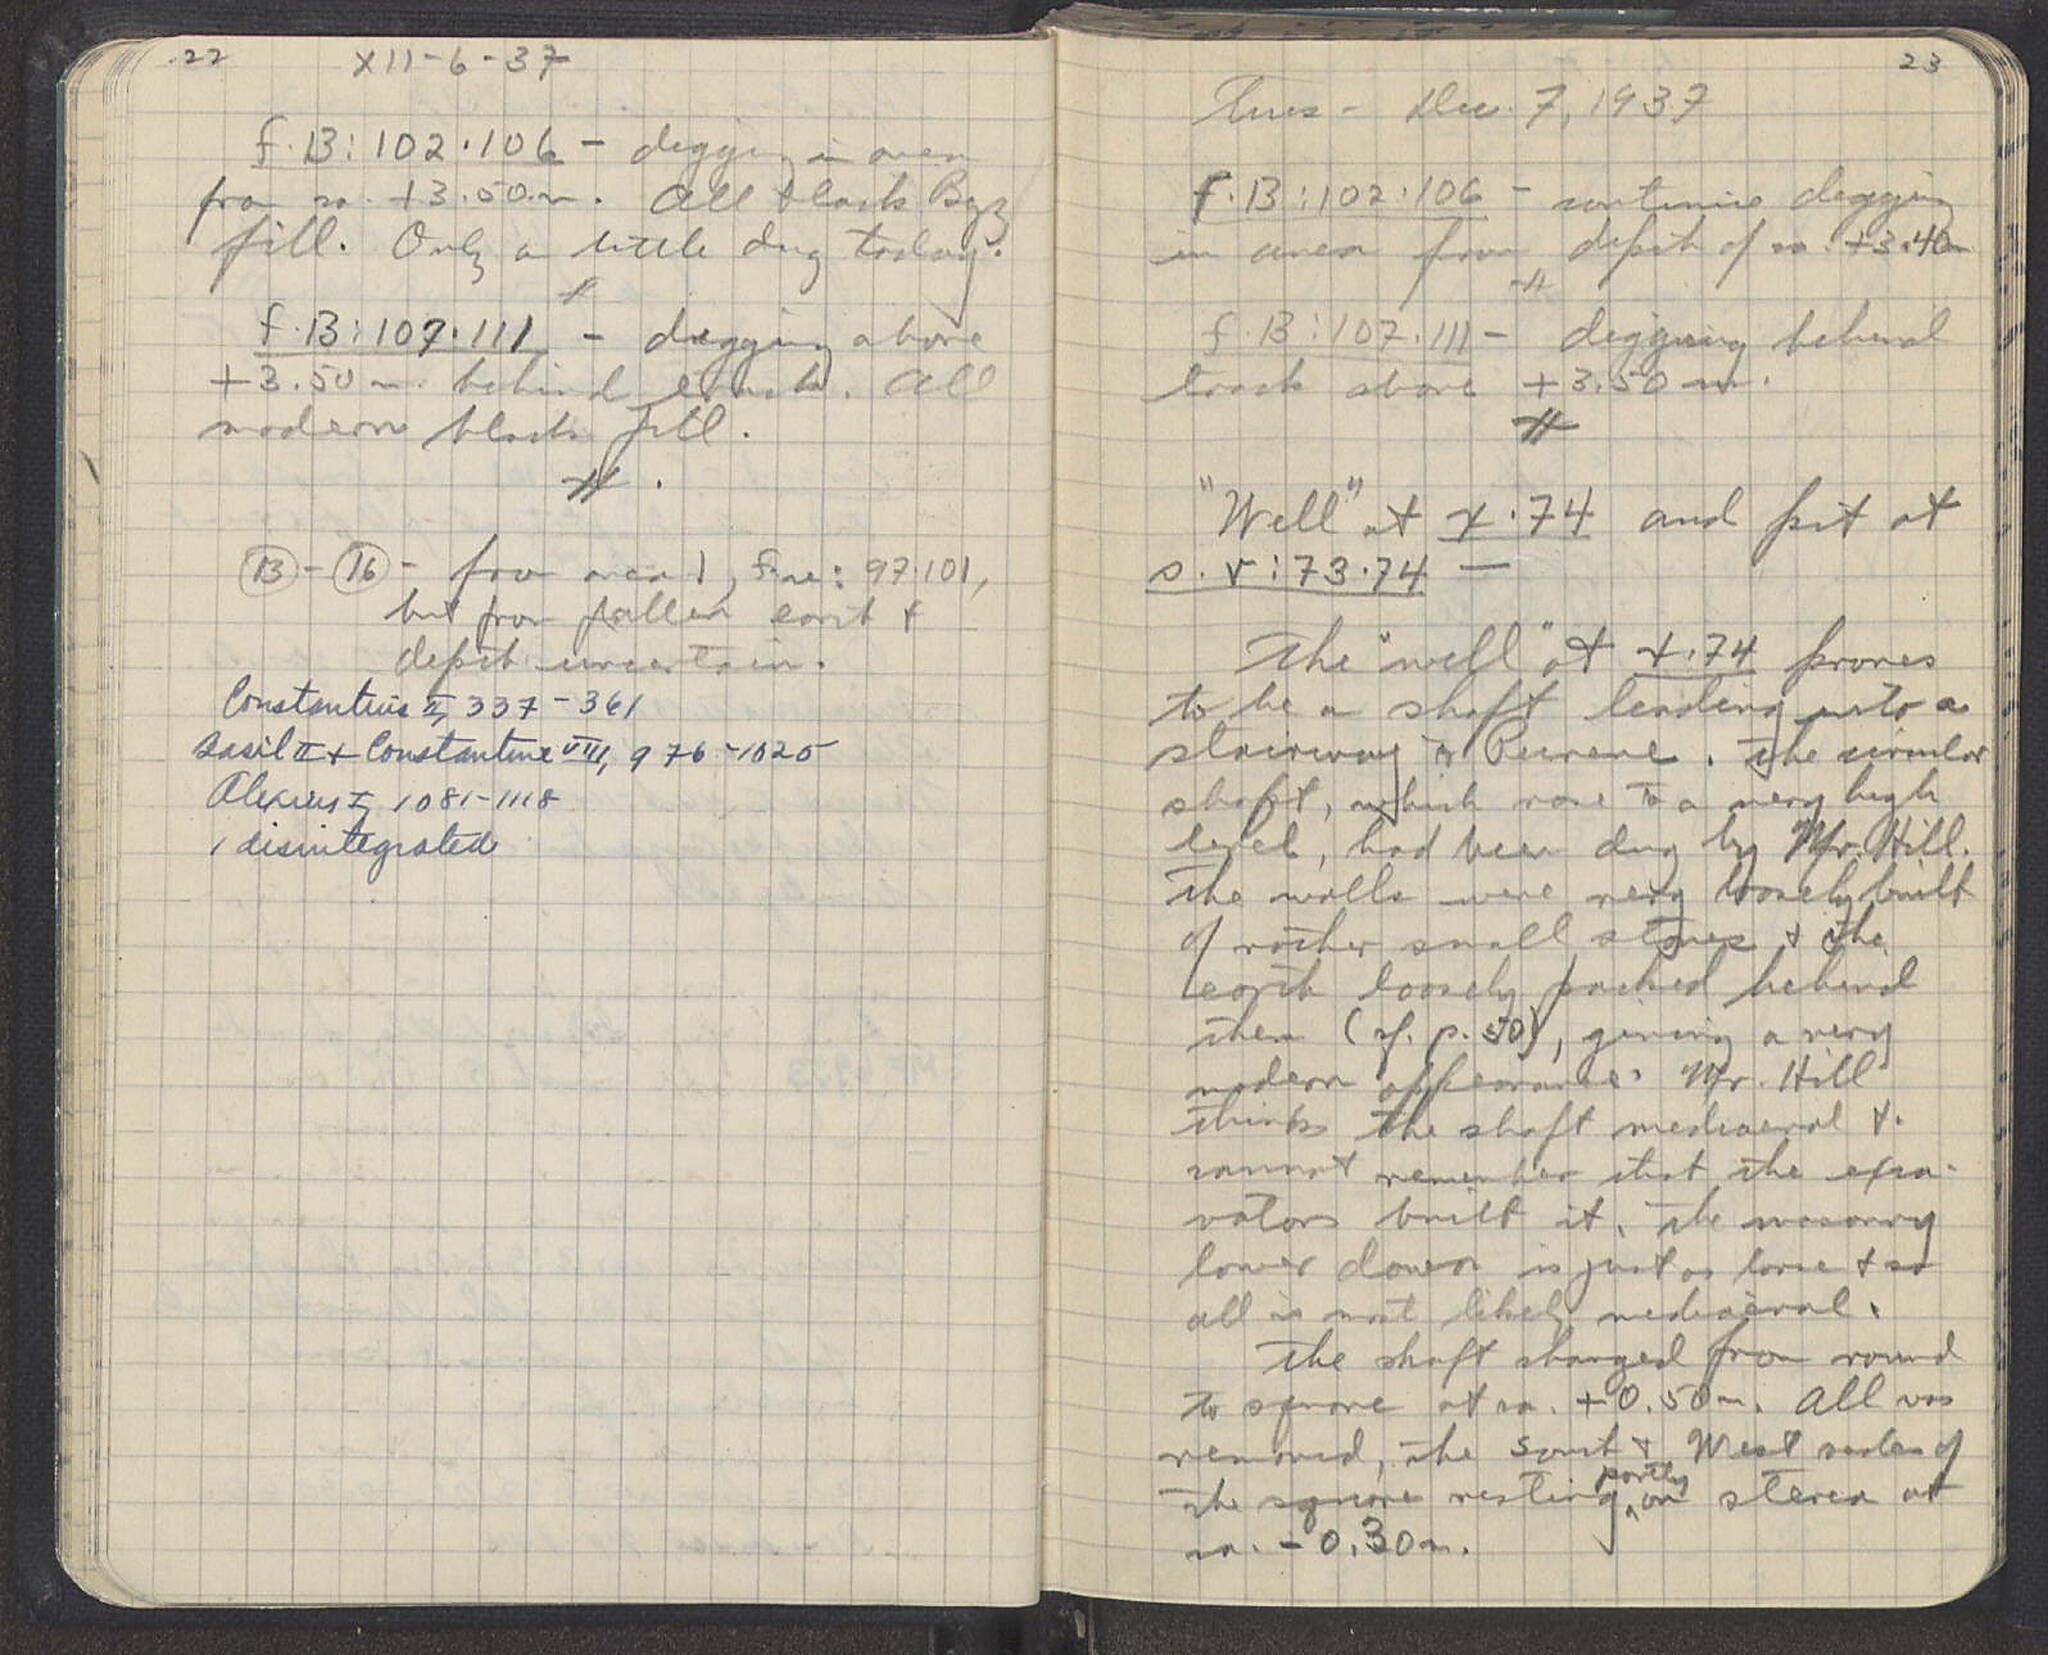 22
XII-6-37
f.B:102.106 - digging in area
from ca. +3.50 m. All black Byz
fill. Only a little dug today.
f.B:107.111 - digging above
+3.50 m. behind track. All
modern black fill.
13 - 16 - from area 1, 97.101,
but from fallen earth &
depth uncertain.
Constantius II, 337-361
Basil II + Constantine VIII, 976-1025
Alexius I, 1081-1118
1 disintegrated
23
Tues - Dec. 7, 1937
f.B:102.106 - continue digging
in area from depth of ca. +3.40m
f.B:107.111 - digging behind
track above +3.50 m.
"Well" at x.74 and pit at
s.v:73.74 —
The "well" at x.74 proves
to be a shaft leading into a
stairway to Peirene. The circular
shaft, which rose to a very high
level, had been dug by Mr. Hill.
The walls were very loosely built
of rather small stones & the
earth loosely packed behind
them (cf. p. 50), giving a very
modern appearance. Mr. Hill
thinks the shaft mediaeval &
cannot remember that the exca-
vators built it. The masonry
lower down is just as loose & so
all is most likely mediaeval.
The shaft changed from round
to square at ca. +0.50m. All was
removed, the South & West sides of
the square resting partly on stereo at
ca. -0.30m.